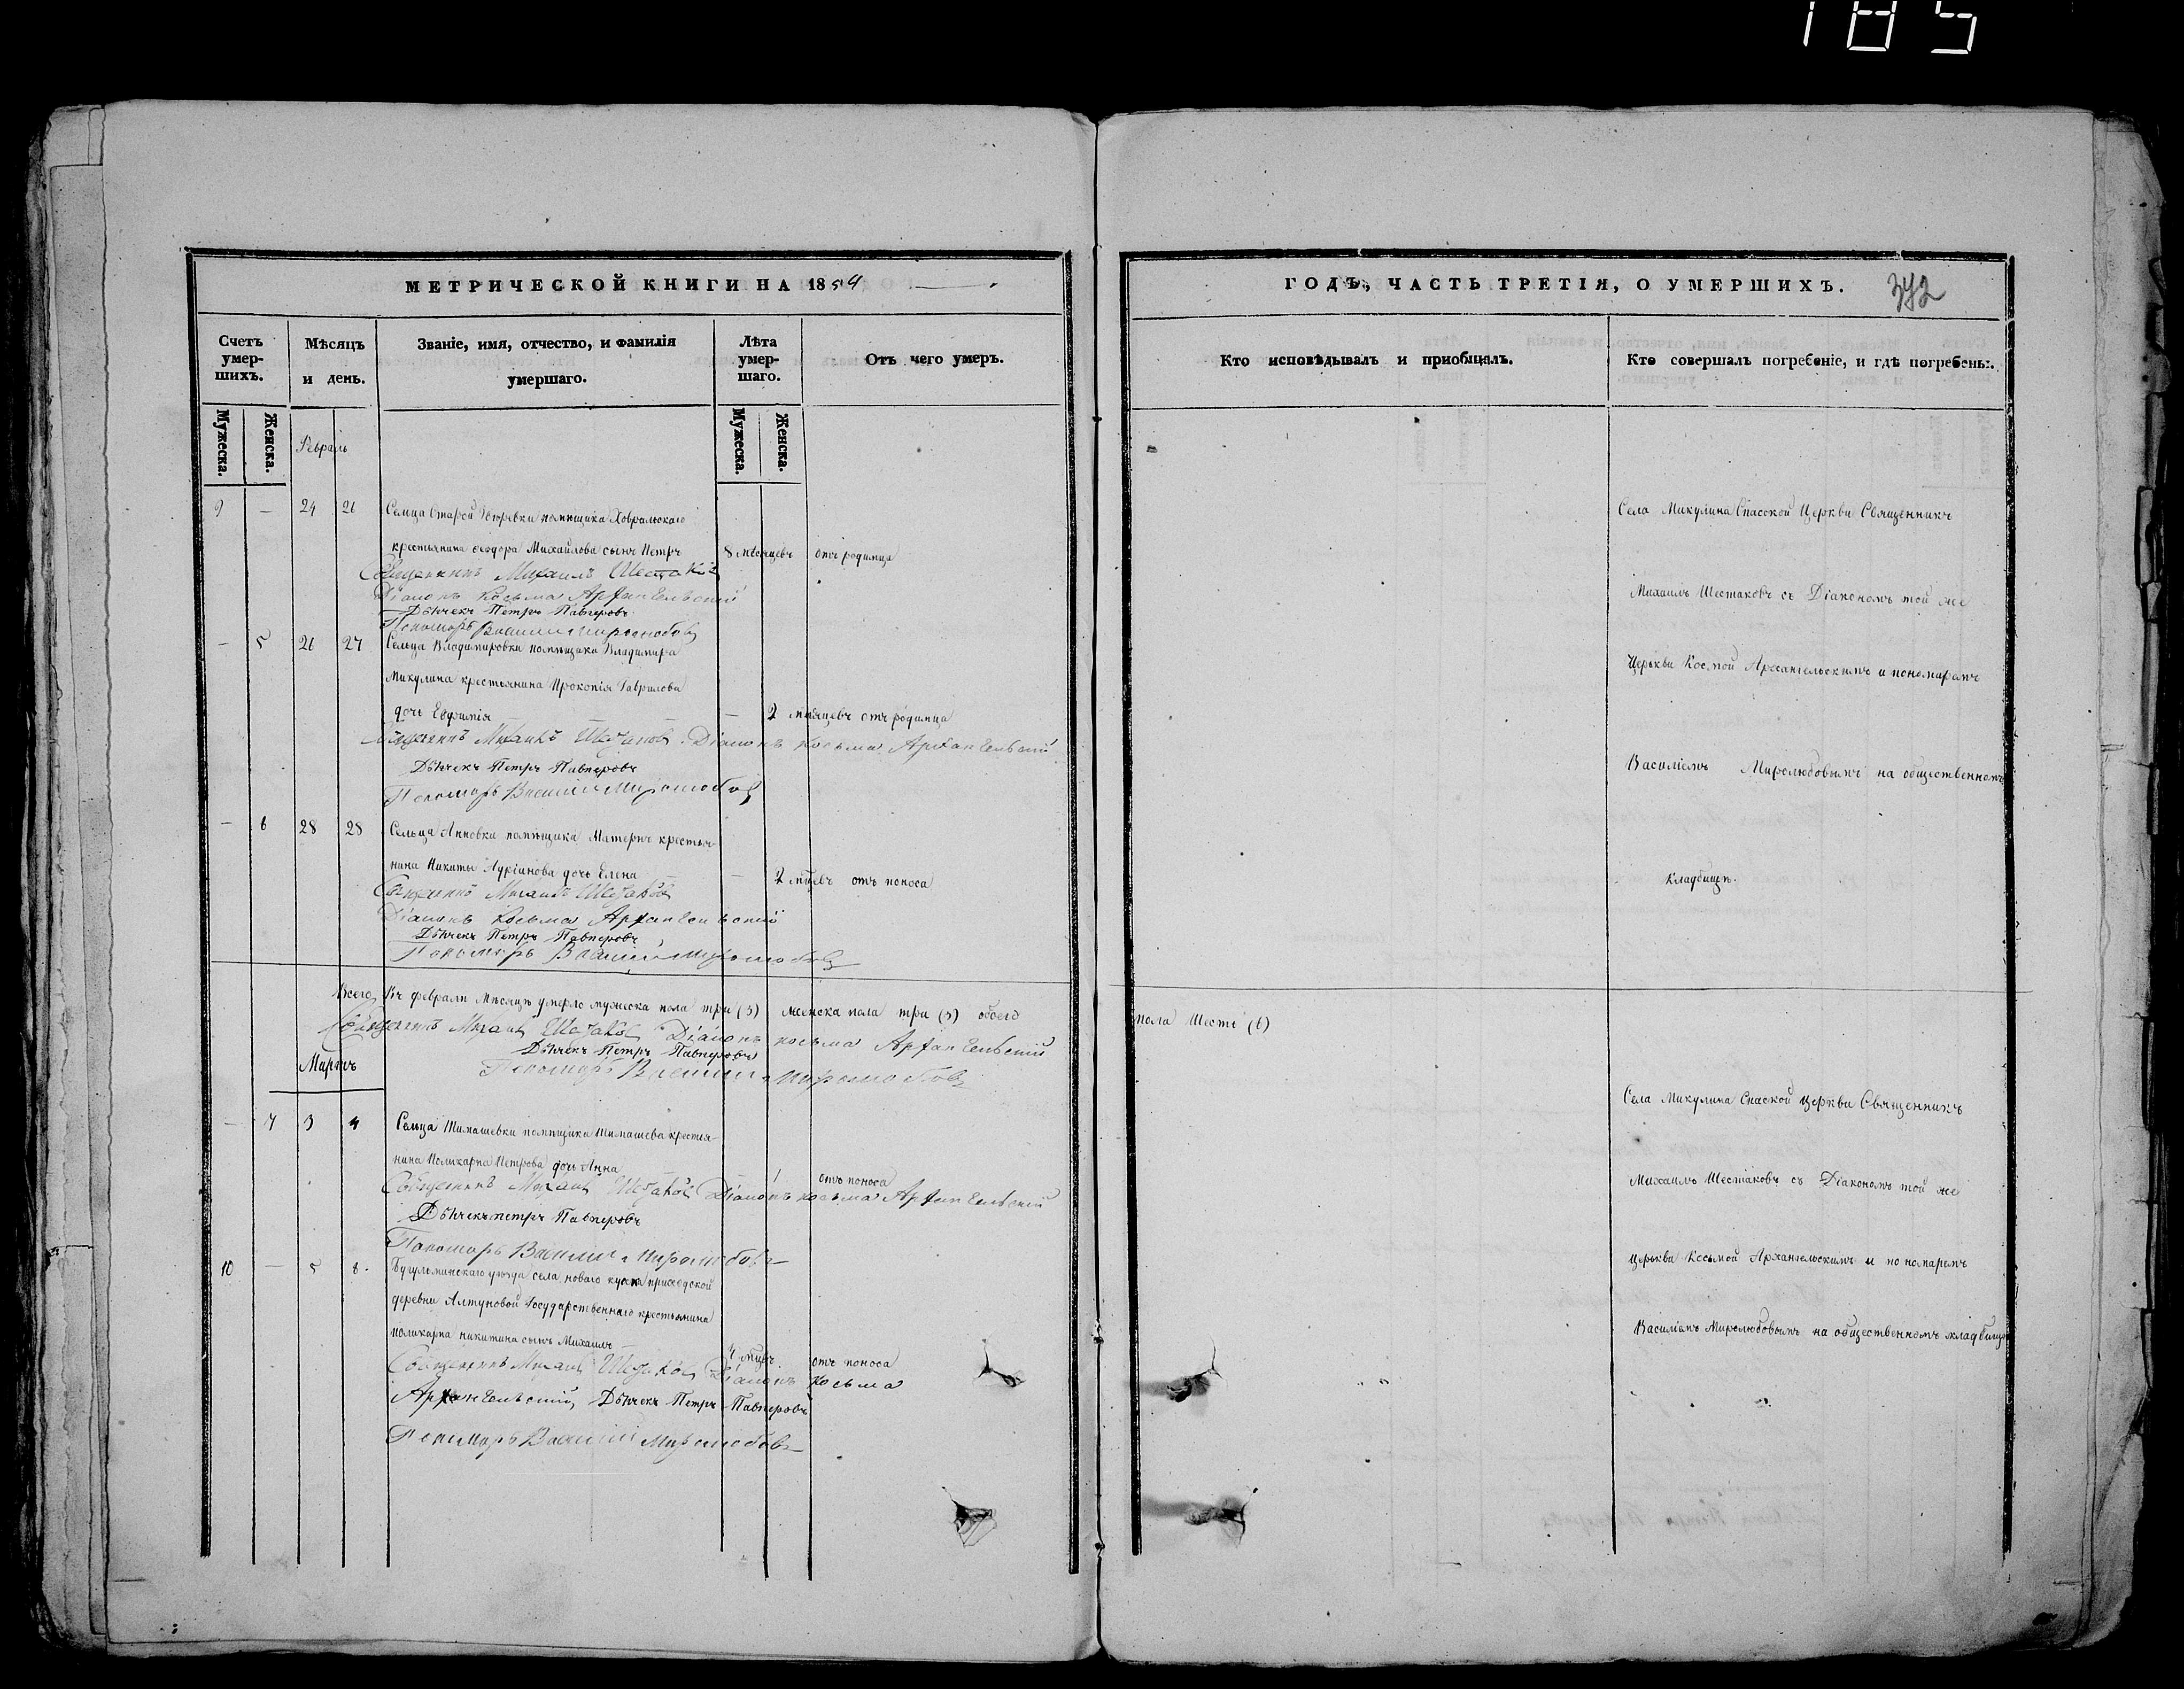 185
МЕТРИЧЕСКОЙ КНИГИ НА 1854
Счетъ умер-шихъ.
Мѣсяцъ и день.
Званіе, имя, отчество, и фамилія умершаго.
Лѣта умер-шаго.
Отъ чего умеръ.
Мужеска.
Женска.
Мужеска.
Женска.
Февраль
9 — 24 26 Сельца Старой помѣщика Ховральскаго
крестьянина Ѳеодора Михайлова сынъ Петръ 8 мѣсяцевъ отъ родимца
Священникъ Михаилъ Шестаковъ
Діаконъ Косьма Архангельскій
Дьячекъ Петръ Павперовъ
Пономарь Василій Миролюбовъ
— 5 26 27 Сельца Владимировки помѣщика Владимира
Микулина крестьянина Прокопія Гаврилова
дочь Евфимія — 2 мѣсяцевъ отъ родимца
Священникъ Михаилъ Шестаковъ Діаконъ Косьма Архангельскій
Дьячекъ Петръ Павперовъ
Пономарь Василій Миролюбовъ
— 6 28 28 Сельца Анновки помѣщика Матернъ крестья-
нина Никиты дочь Елена — 2 мѣцевъ отъ поноса
Священникъ Михаилъ Шестаковъ
Діаконъ Косьма Архангельскій
Дьячекъ Петръ Павперовъ
Пономарь Василій Миролюбовъ
Всего Въ февралѣ мѣсяцѣ умерло мужеска пола три (3) женска пола три (3) обоего
Священникъ Михаилъ Шестаковъ Діаконъ Косьма Архангельскій
Дьячекъ Петръ Павперовъ
Пономарь Василій Миролюбовъ
Мартъ
— 7 3 4 Сельца Тимашевки помѣщика Тимашева крестья-
нина Поликарпа Петрова дочь Анна — 1 отъ поноса
Священникъ Михаилъ Шестаковъ Діаконъ Косьма Архангельскій
Дьячекъ Петръ Павперовъ
Пономарь Василій Миролюбовъ
10 — 5 8 Бугульминскаго уѣзда села новаго приходской
деревни Алтуновой Государственнаго крестьянина
Поликарпа Никитина сынъ Михаилъ 4 мѣцъ. отъ поноса
Священникъ Михаилъ Шестаковъ Діаконъ Косьма
Архангельскій, Дьячекъ Петръ Павперовъ
Пономарь Василій Миролюбовъ
ГОДЪ, ЧАСТЬ ТРЕТІЯ, О УМЕРШИХЪ. 372
Кто исповѣдывалъ и пріобщалъ.
Кто совершалъ погребеніе, и гдѣ погребены.
Села Микулина Спасской Церкви Священникъ
Михаилъ Шестаковъ съ Діакономъ той же
Церькви Космой Архангельскимъ и пономаремъ
Василіемъ Миролюбовымъ на общественномъ
кладбищѣ.
пола Шесть (6)
Села Микулина Спаской церкви Священникъ
Михаилъ Шестаковъ съ Діакономъ той же
церькви Косьмой Архангельскимъ и пономаремъ
Василіемъ Миролюбовымъ на общественномъ кладбищѣ